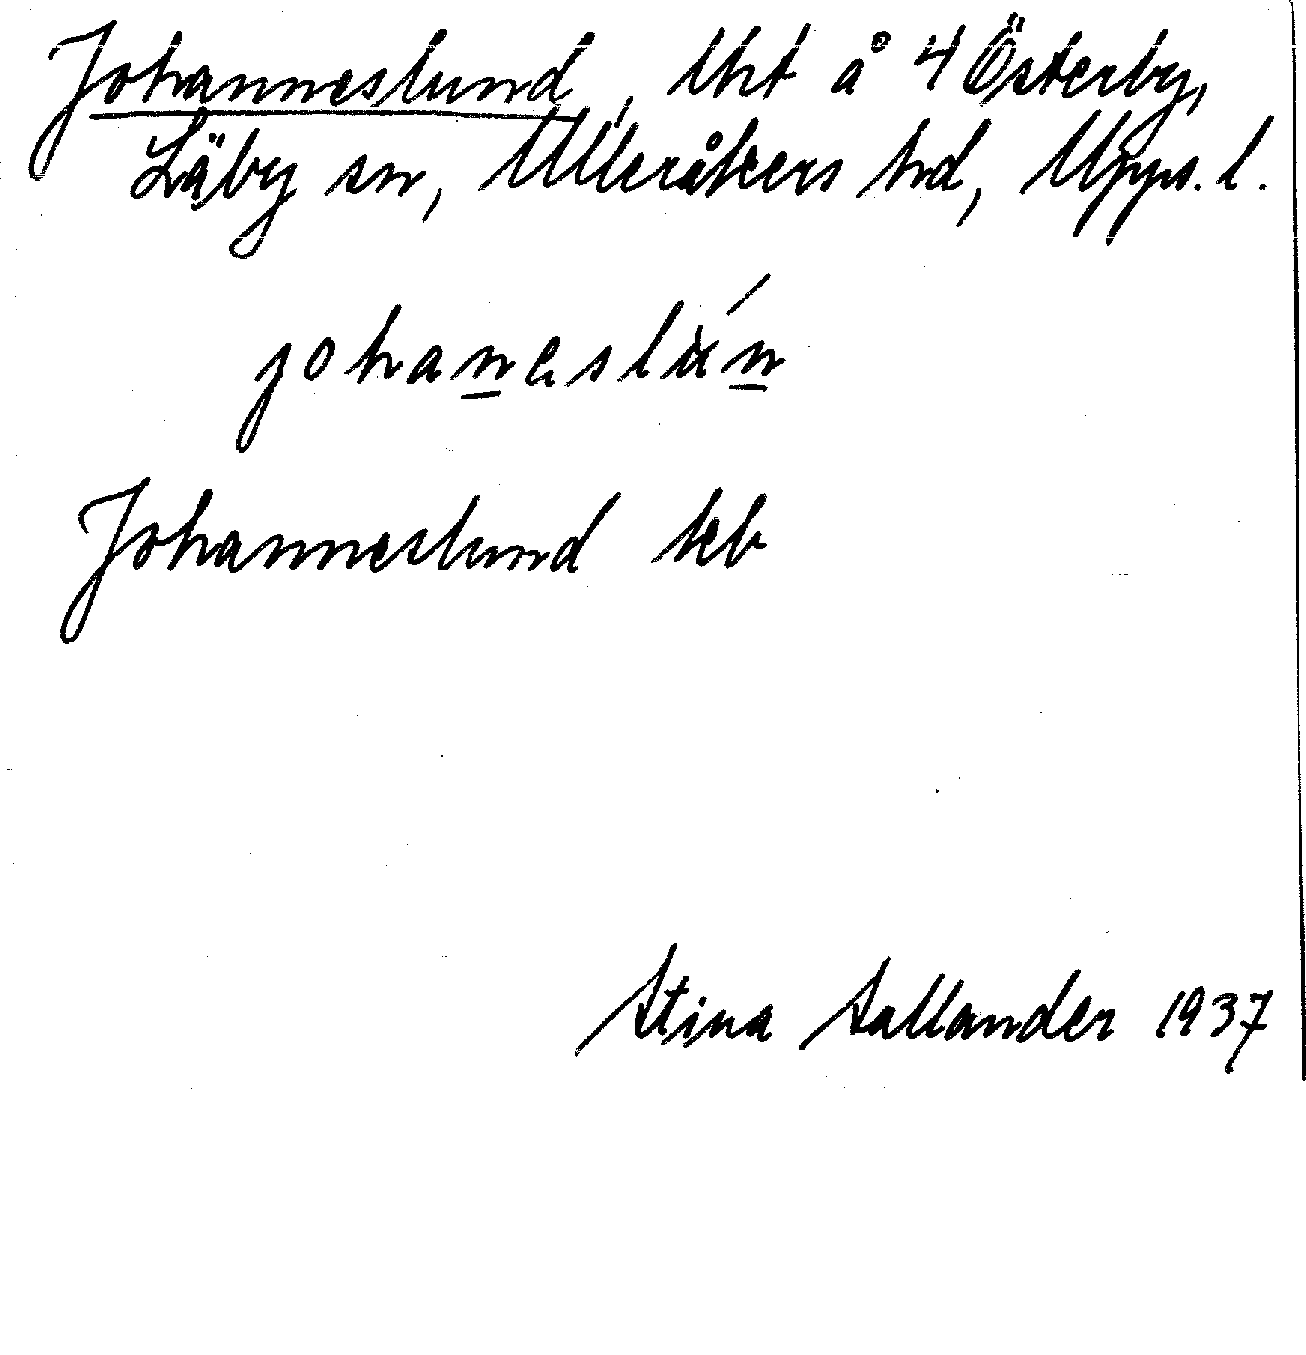 Johanneslund, lht å 4 Österby,
Läby sn, Ulleråkers hd, Upps. l.
johaneslún
Johanneslund keb
Stina Sallander 1937